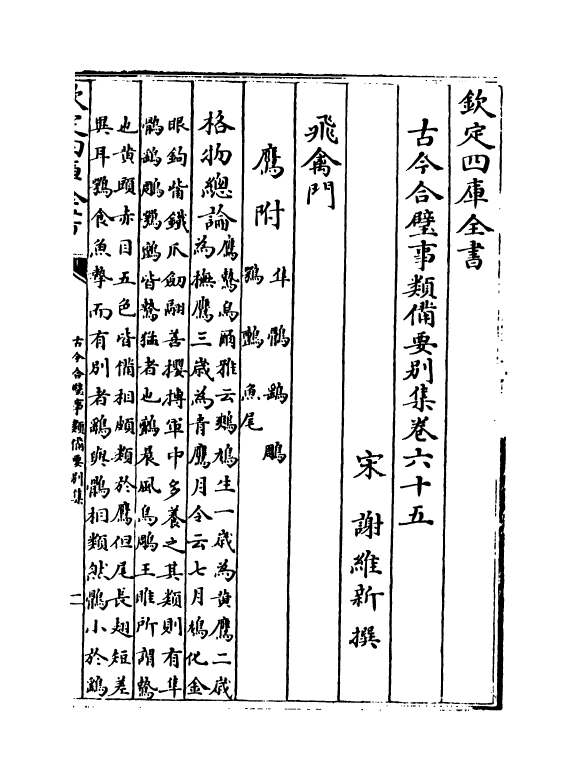 欽定四庫全書
古今合璧事類備要別集卷六十五
宋 謝維新 撰
飛禽門
鷹 附 隼 鶻 鷂 鵰
鶚 鸇 魚尾
格物總論 鷹鷙鳥爾雅云鷞鳩生一歲為黃鷹二歲
為撫鷹三歲為青鷹月令云七月鳩化金
眼鉤觜鐵爪劒翮善攫搏軍中多養之其類則有隼
鶻鷂鵰鶚鸇皆鷙猛者也鸇晨風鳥鵰王雎所謂鷙
也黃頭赤目五色皆備相頗類於鷹但尾長翅短差
異耳鶚食魚摯而有別者鷂與鶻相類然鶻小於鷂
欽定四庫全書
古今合璧事類備要別集
二